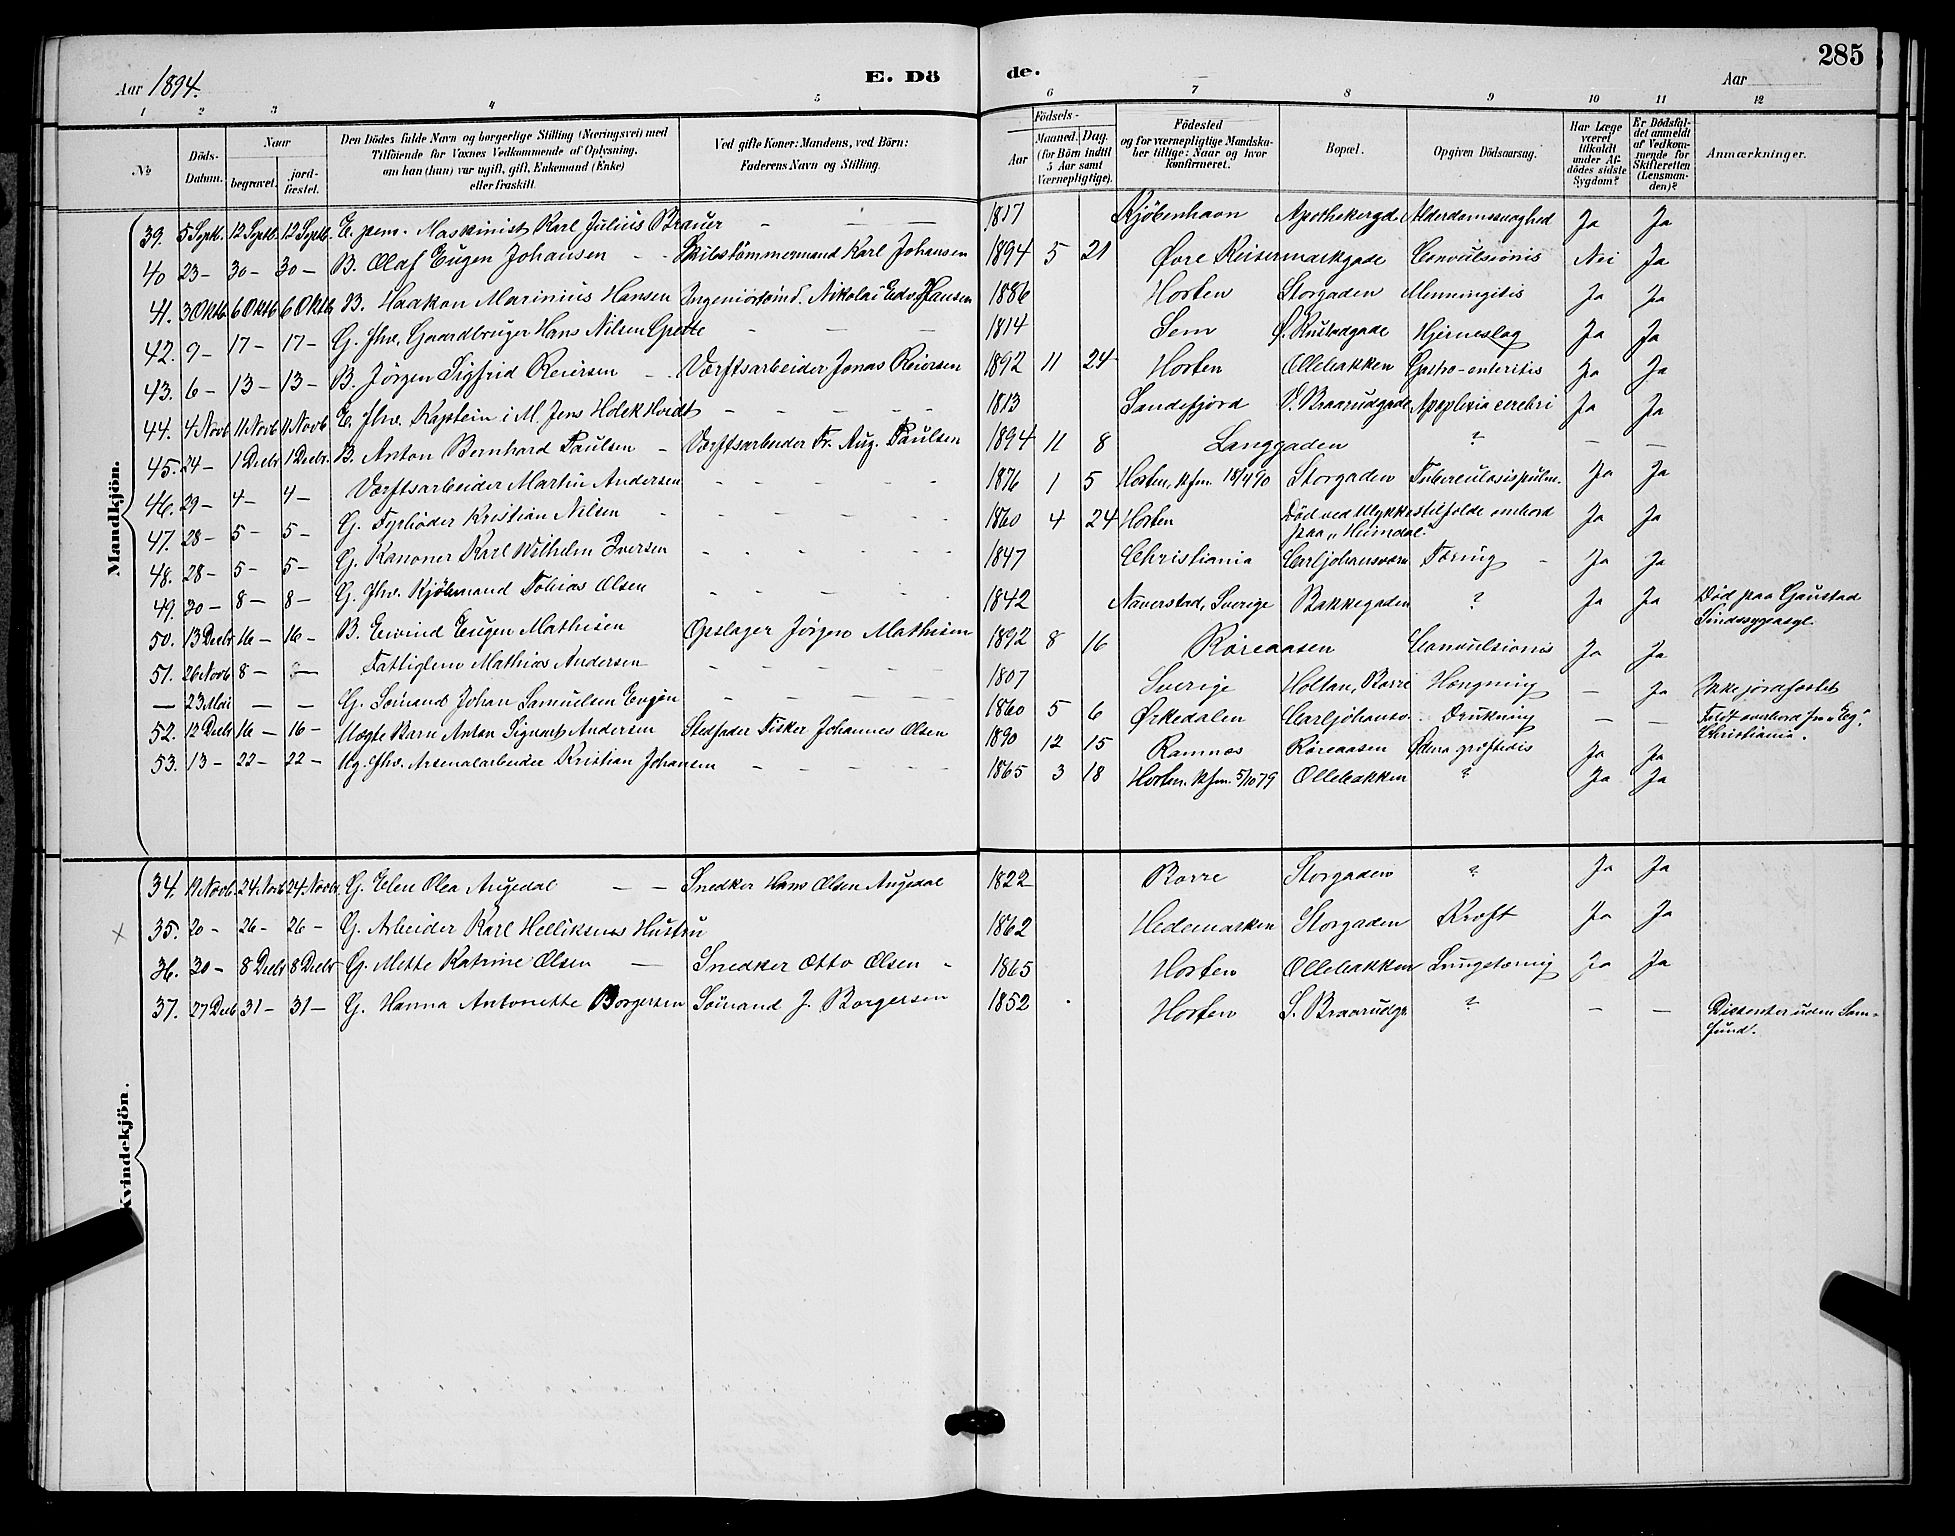 285
Aar 1894. E. Dö de. Aar
1 2 3 4 5 6 7 8 9 10 11 12
№ Döds-Datum. Naar begravet. jordfæstet. Den Dødes fulde Navn og borgerlige Stilling (Næringsvei) med Tilföiende for Voxnes Vedkommende af Oplysning, om han (hun) var ugift, gift, Enkemand (Enke) eller fraskilt. Ved gifte Koner: Mandens, ved Börn: Faderens Navn og Stilling. Födsels- Aar Maaned. Dag. (for Börn indtil 5 Aar samt Værnepligtige). Födested og for værnepligtige Mandskaber tillige: Naar og hvor konfirmeret. Bopæl. Opgiven Dödsaarsag. Har Læge været tilkaldt under Afdödes sidste Sygdom? Er Dödsfaldet anmeldt af Vedkommende for Skifteretten (Lensmanden)? Anmærkninger.
Mandkjön.
39. 5 Septb. 12 Septb. 12 Septb. E. pens. Maskinist Karl Julius Brauer - - 1817 Kjöbenhavn Apothekergd. Alderdomssvaghed Ja Ja
40 23 - 30 - 30 - B. Olaf Eugen Johansen - - Skibstömmermand Karl Johansen 1894 5 21 Övre Keisermarkgade Convulsionis Nei Ja
41. 3 Oktb. 6 Oktb 6 Oktb B. Haakon Marinius Hansen Nikolai Edv. Hansen 1886 Horten Storgaden Menningitis Ja Ja
42. 9 - 17 - 17 - G. fhv. Gaardbruger Hans Nilsen Grette - - - 1814 Sem Hjerneslag Ja Ja
43. 6 - 13 - 13 - B. Jörgen Sigfrid Reiersen - Værftsarbeider Jonas Reiersen 1892 11 24 Horten Ollebakken Gastro-enteritis Ja Ja
44. 4 Novb 11 Novb 11 Novb E. fhv. Kaptein i M. Jens Holck Hvidt - - - - 1813 Sandefjord V. Braarudgade Apoplexia cerebri Ja Ja
45. 24 - 1 Decbr 1 Decbr. B. Anton Bernhard Paulsen - Værftsarbeider Fr. Aug. Paulsen 1894 11 8 Langgaden ? - -
46. 29 - 4 - 4 - Værftsarbeider Martin Andersen - - - - 1876 1 5 Horten, kfm. 18/4 90 Storgaden Tuberculosis pulm. Ja Ja
47. 28 - 5 - 5 - G. Fyrböder Kristian Nilsen - - - - 1860 4 24 Horten Död ved Ulykkestilfælde ombord Ja Ja
paa „Heimdal"
48. 28 - 5 - 5 - G. Kanoner Karl Wilhelm Iversen - - - - 1847 Christiania Carljohansværn Tæring - Ja Ja
49. 30 - 8 - 8 - G. fhv. Kjöbmand Tobias Olsen - - - - 1842 Naverstad, Sverige Bakkegaden ? Ja Ja Död paa Gaustad
Sindssygeasyl.
50. 13 Decbr 16 - 16 - B. Eivind Eugen Mathisen Opslager Jörgen Mathisen 1892 8 16 Röreaasen Convulsionis Ja Ja
51. 26 Novb 8 - Fattiglem Mathias Andersen - - - - 1807 Sverige Holtan, Borre Hængning - Ja Ikke jordfæstet
- 23 Mai - - G. Sömand Johan Samuelsen - - - - 1860 5 6 Örkedalen Carljohansv. Drukning - - Faldt overbord fra „Eg"
Christiania.
52. 12 Decbr 16 - 16 - Uægte Barn Anton Andersen Stedfader Fisker Johannes Olsen 1890 12 15 Ramnæs Röreaasen Ja Ja
53. 13 - 22 - 22 - Ug. fhv. Arsenalarbeider Kristian Johansen - - - - 1865 3 18 Horten. kfm. 5/10 79 Ollebakken ? Ja Ja
Kvindekjön.
34. 19 Novb. 24 Novb 24 Novbr. G. Elen Olea Augedal - - Snedker Hans Olsen Augedal 1822 Borre Storgaden ? Ja Ja
× 35. 20 - 26 - 26 - G. Arbeider Karl Helliksens Hustru 1862 Hedemarken Storgaden Kræft Ja Ja
36. 30 - 8 Decbr 8 Decbr G. Mette Katrine Olsen - Snedker Otto Olsen - 1865 Horten Ollebakken Lungetæring Ja Ja
37. 27 Decb 31 - 31 - G. Hanna Antonette Borgersen Sömand J. Borgersen 1852 Horten S. Braarudgr. ? - - Dissenter uden Sam-
fund.